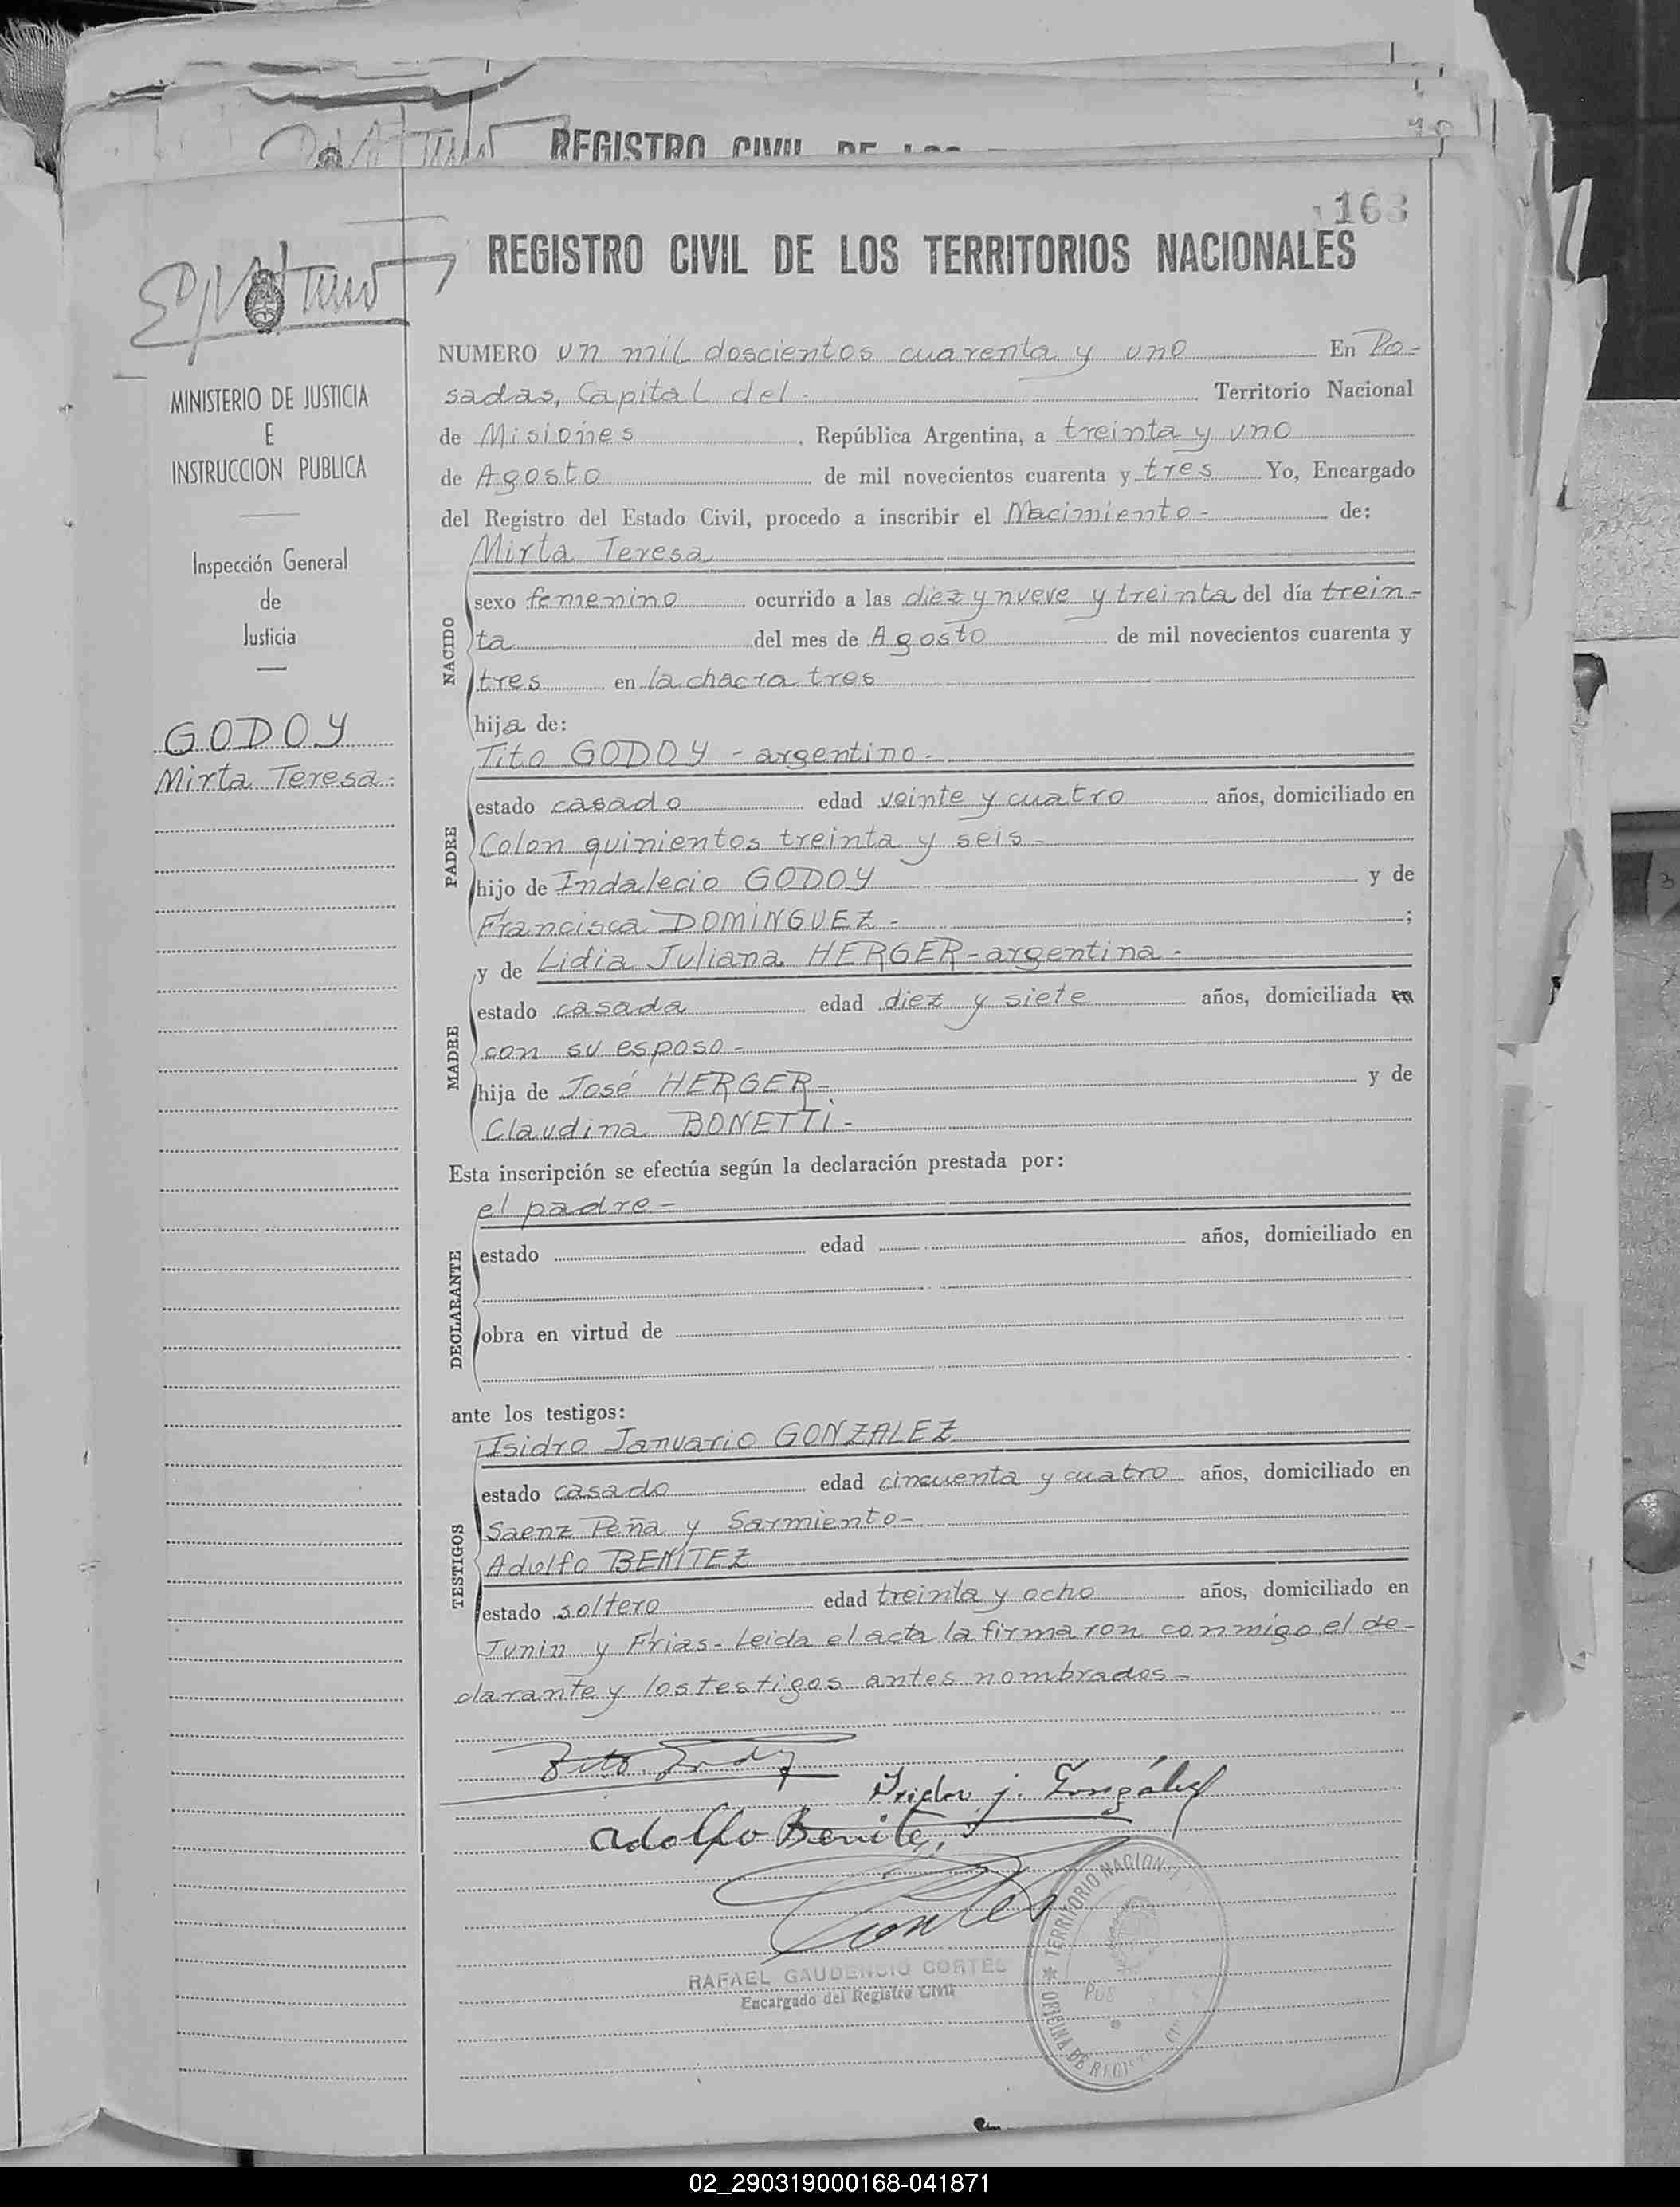 REGISTRO CIVIL DE LOS
163
REGISTRO CIVIL DE LOS TERRITORIOS NACIONALES
MINISTERIO DE JUSTICIA
E
INSTRUCCION PUBLICA
Inspección General
de
Justicia
GODOY
Mirta Teresa
NUMERO un mil doscientos cuarenta y uno En Po-
sadas, Capital del Territorio Nacional
de Misiones, República Argentina, a treinta y uno
de Agosto de mil novecientos cuarenta y tres Yo, Encargado
del Registro del Estado Civil, procedo a inscribir el Nacimiento - de:
NACIDO
Mirta Teresa
sexo femenino ocurrido a las diez y nueve y treinta del día trein-
ta del mes de Agosto de mil novecientos cuarenta y
tres en la chacra tres
hija de:
PADRE
Tito GODOY - argentino -
estado casado edad veinte y cuatro años, domiciliado en
Colon quinientos treinta y seis -
hijo de Indalecio GODOY y de
Francisca DOMINGUEZ - ;
MADRE
y de Lidia Juliana HERGER - argentina -
estado casada edad diez y siete años, domiciliada en
con su esposo -
hija de José HERGER - y de
Claudina BONETTI -
Esta inscripción se efectúa según la declaración prestada por:
DECLARANTE
el padre -
estado edad años, domiciliado en
obra en virtud de
ante los testigos:
TESTIGOS
Isidro Januario GONZALEZ
estado casado edad cincuenta y cuatro años, domiciliado en
Saenz Peña y Sarmiento -
Adolfo BENITEZ
estado soltero edad treinta y ocho años, domiciliado en
Junin y Frias - Leida el acta la firmaron conmigo el de-
clarante y los testigos antes nombrados -
Tito Godoy
Isidro j. González
Adolfo Benitez
Cortes
RAFAEL GAUDENCIO CORTES
Encargado del Registro Civil
TERRITORIO NACIONAL
OFICINA DE REGIST
02_290319000168-041871